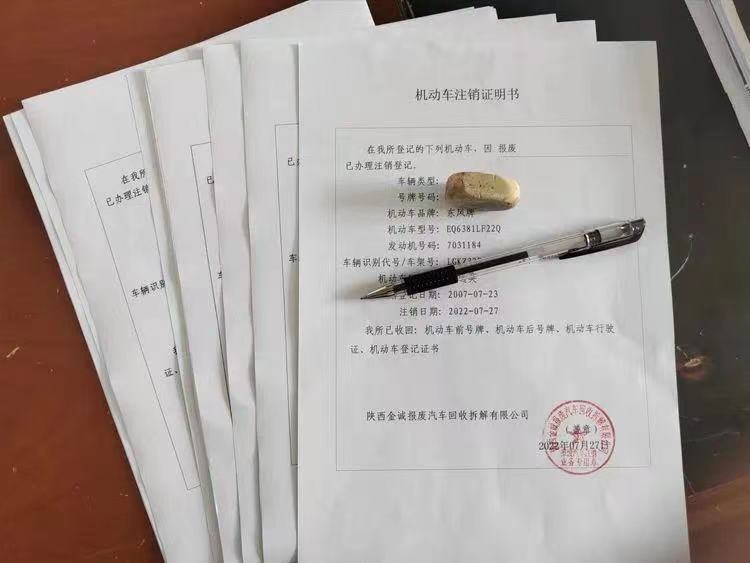 机动车注销证明书
在我所登记的下列机动车、因 报废
已办理注销登记.
车辆类型:
号牌号码:
机动车品牌: 东风牌
机动车型号: EQ6381LF22Q
发动机号码: 7031184
车辆识别代号/车架号: LGKZ
机动车
登记日期: 2007-07-23
注销日期: 2022-07-27
我所已收回: 机动车前号牌、机动车后号牌、机动车行驶
证、机动车登记证书
陕西金诚报废汽车回收拆解有限公司
(盖章)
2022年07月27日
业务专用章
在我
已办理注销
车辆识别
证、机